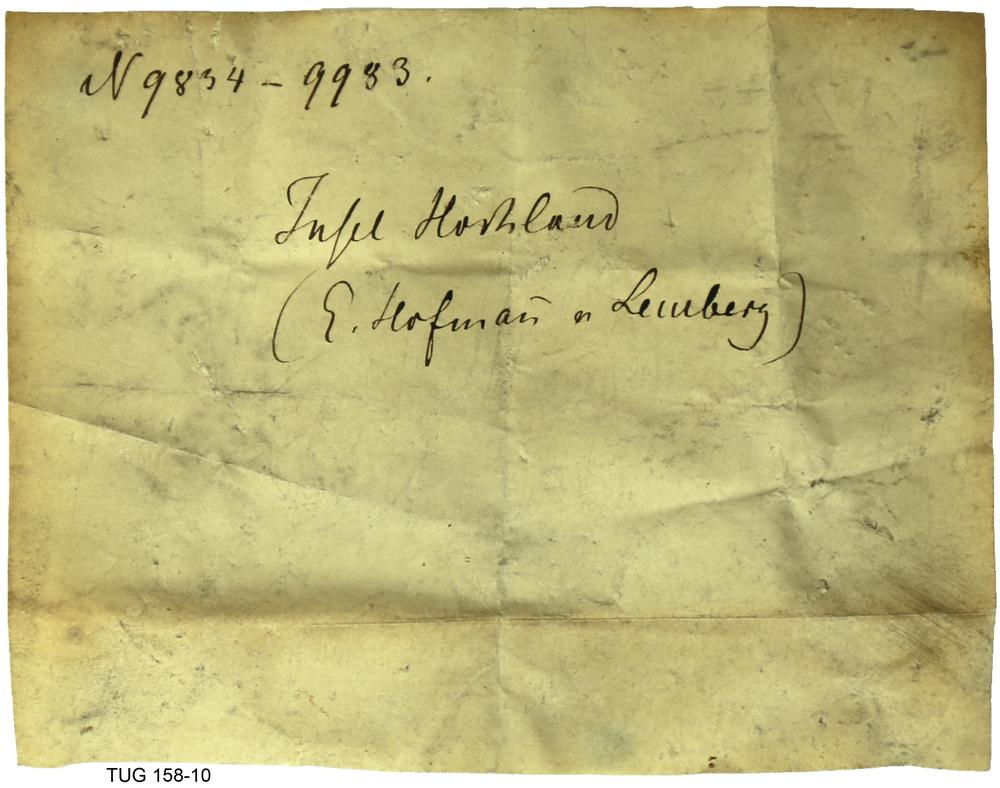 N 9834 – 9983.
Insel Hochland
(E. Hofman̄ u Lemberg)
TUG 158-10